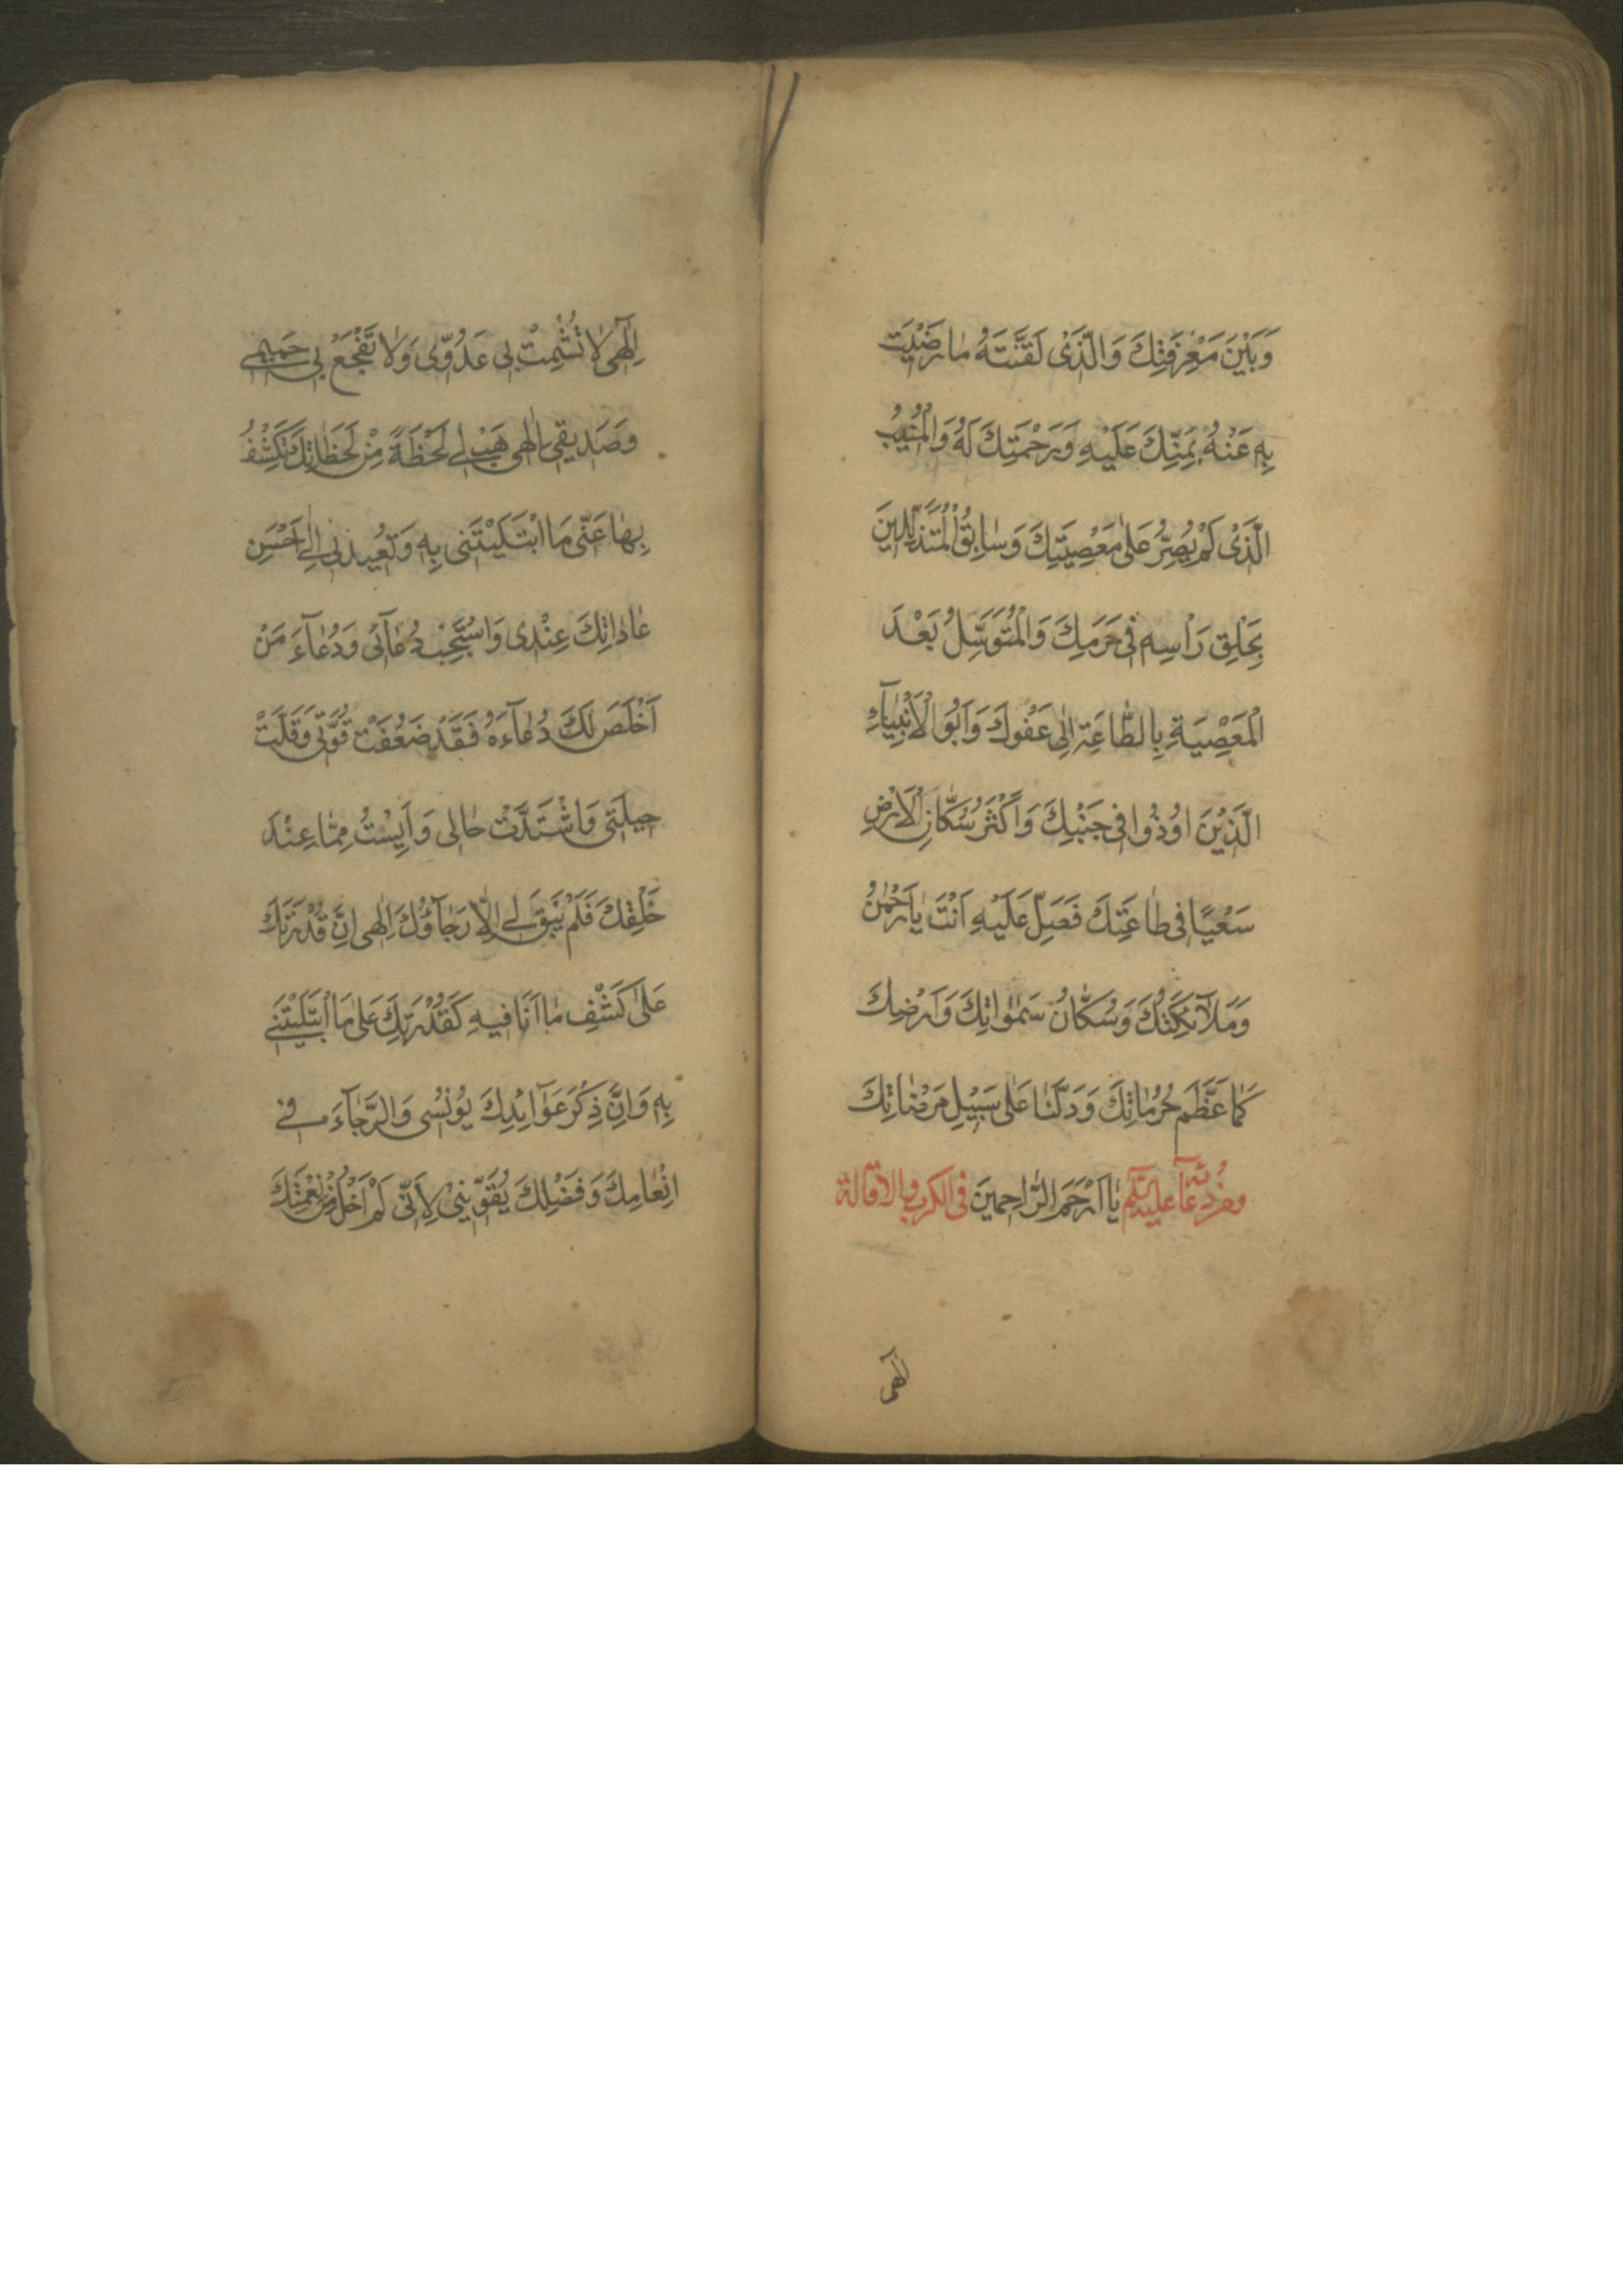 وَبَيْنَ مَعْرِفَتِكَ وَالَّذِى لَقَّنْتَهُ مٰا رَضيٖتَ
بِهِ عَنْهُ بِمَنِّكَ عَلَيْهِ وَرَحْمَتِكَ لَهُ وَالْمُنيٖبُ
الَّذِى لَمْ يُصِرُّ عَلىٰ مَعْصِيَتِكَ وَسٰابِقُ الْمُتَذَلِّليٖنَ
بِحَلْقِ رَأْسِهِ فى حَرَمِكَ وَالْمُتَوَسِّلُ بَعْدَ
الْمَعْصِيَةِ بِالطّٰاعَةِ اِلىٰ عَفْوِكَ وَاَبُو الْاَنْبِيٰآءِ
الَّذيٖنَ اوُذُوا فى جَنْبِكَ وَاَكْثَرُ سُكّٰانِ الْاَرْضِ
سَعْيًا فى طٰاعَتِكَ فَصَلِّ عَلَيْهِ اَنْتَ يٰا رَحْمٰنُ
وَمَلٰآئِكَتُكَ وَسُكّٰانُ سَمٰوٰاتِكَ وَاَرْضِكَ
كَمٰا عَظَّمَ حُرُمٰاتِكَ وَدَلَّنٰا عَلىٰ سَبيٖلِ مَرْضٰاتِكَ
ومن دعائه عليه السلام يٰا اَرْحَمَ الرّٰاحِميٖنَ فى الكرب والاقالة
اِلٰهى
اِلٰهى لاٰ تُشْمِتْ بى عَدُوّى وَلاٰ تَفْجَعْ بى حَميٖمى
وَصَديٖقى اِلٰهى هَبْ لى لَحْظَةً مِنْ لَحَظٰاتِكَ تَكْشِفُ
بِهٰا عَنّى مَا ابْتَلَيْتَنى بِهِ وَتُعيٖدُنى اِلىٰ اَحْسَنِ
عٰادٰاتِكَ عِنْدى وَاسْتَجِبْ دُعٰآئى وَدُعٰآءَ مَنْ
اَخْلَصَ لَكَ دُعٰآءَهُ فَقَدْ ضَعُفَتْ قُوَّتى وَقَلَّتْ
حيٖلَتى وَاشْتَدَّتْ حٰالى وَاَيِسْتُ مِمّٰا عِنْدَ
خَلْقِكَ فَلَمْ يَبْقَ لى اِلاّٰ رَجٰآؤُكَ اِلٰهى اِنَّ قُدْرَتَكَ
عَلىٰ كَشْفِ مٰا اَنَا فيٖهِ كَقُدْرَتِكَ عَلىٰ مَا ابْتَلَيْتَنى
بِهِ وَاِنَّ ذِكْرَ عَوٰآئِدِكَ يوُنِسُنى وَالرَّجٰآءَ فى
اِنْعٰامِكَ وَفَضْلِكَ يُقَوّيٖنى لِاَنّى لَمْ اَخْلُ مِنْ نِعْمَتِكَ